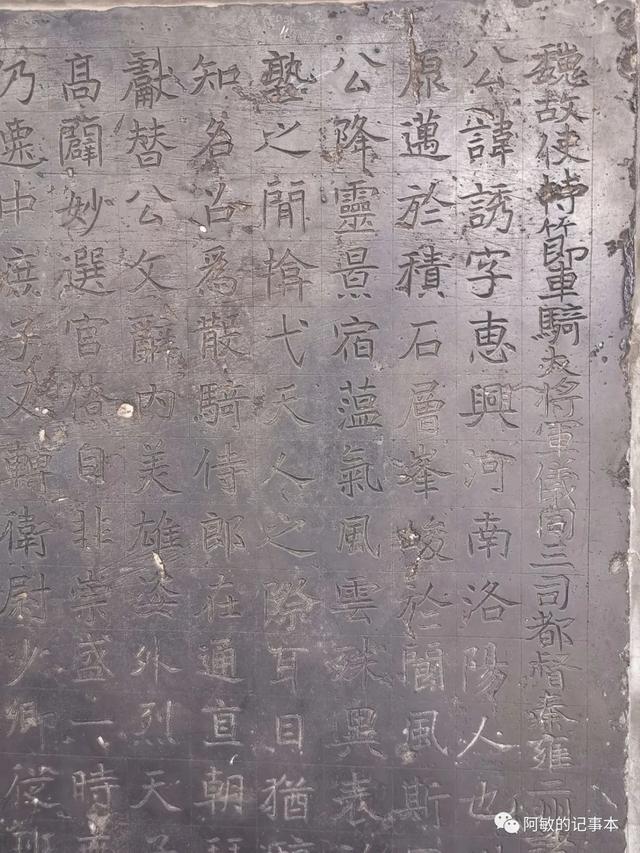 魏故使持節車騎大將軍儀同三司都督秦雍二州
公諱誘字惠興河南洛陽人也
原邁於積石層峯峻於閬風斯
公降靈景宿蕰氣風雲殊異表
塾之間揄弋天人之際耳目猶
知名召爲散騎侍郎在通直朝
獻替公文辭內美雄姿外烈天子
高闢妙選官僚自非崇盛一時
乃遷中庶子又轉衛尉少卿從
阿敏的记事本